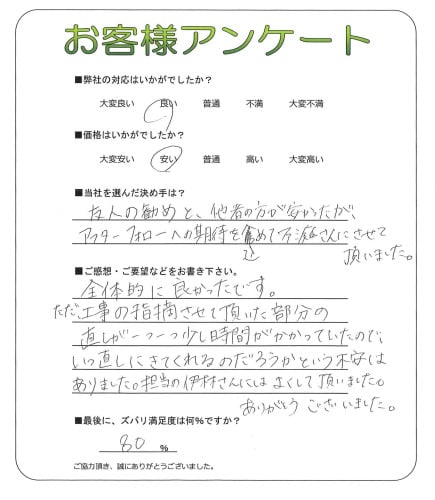 お客様アンケート
■弊社の対応はいかがでしたか？
大変良い 良い 普通 不満 大変不満
■価格はいかがでしたか？
大変安い 安い 普通 高い 大変高い
■当社を選んだ決め手は？
友人の勧めと、他者の方が安かったが、
アフターフォローへの期待を含めて さんにさせて
頂いました。
■ご感想・ご要望などをお書き下さい。
全体的に良かったです。
ただ工事の指摘させて頂いた部分の
直しが一つ一つ少し時間がかかっていたので、
いつ直しにきてくれるのだろうかという不安は
ありました。担当の伊村さんにはよくして頂いました。
ありがとうございいました。
■最後に、ズバリ満足度は何%ですか？
80 %
ご協力頂き、誠にありがとうございました。